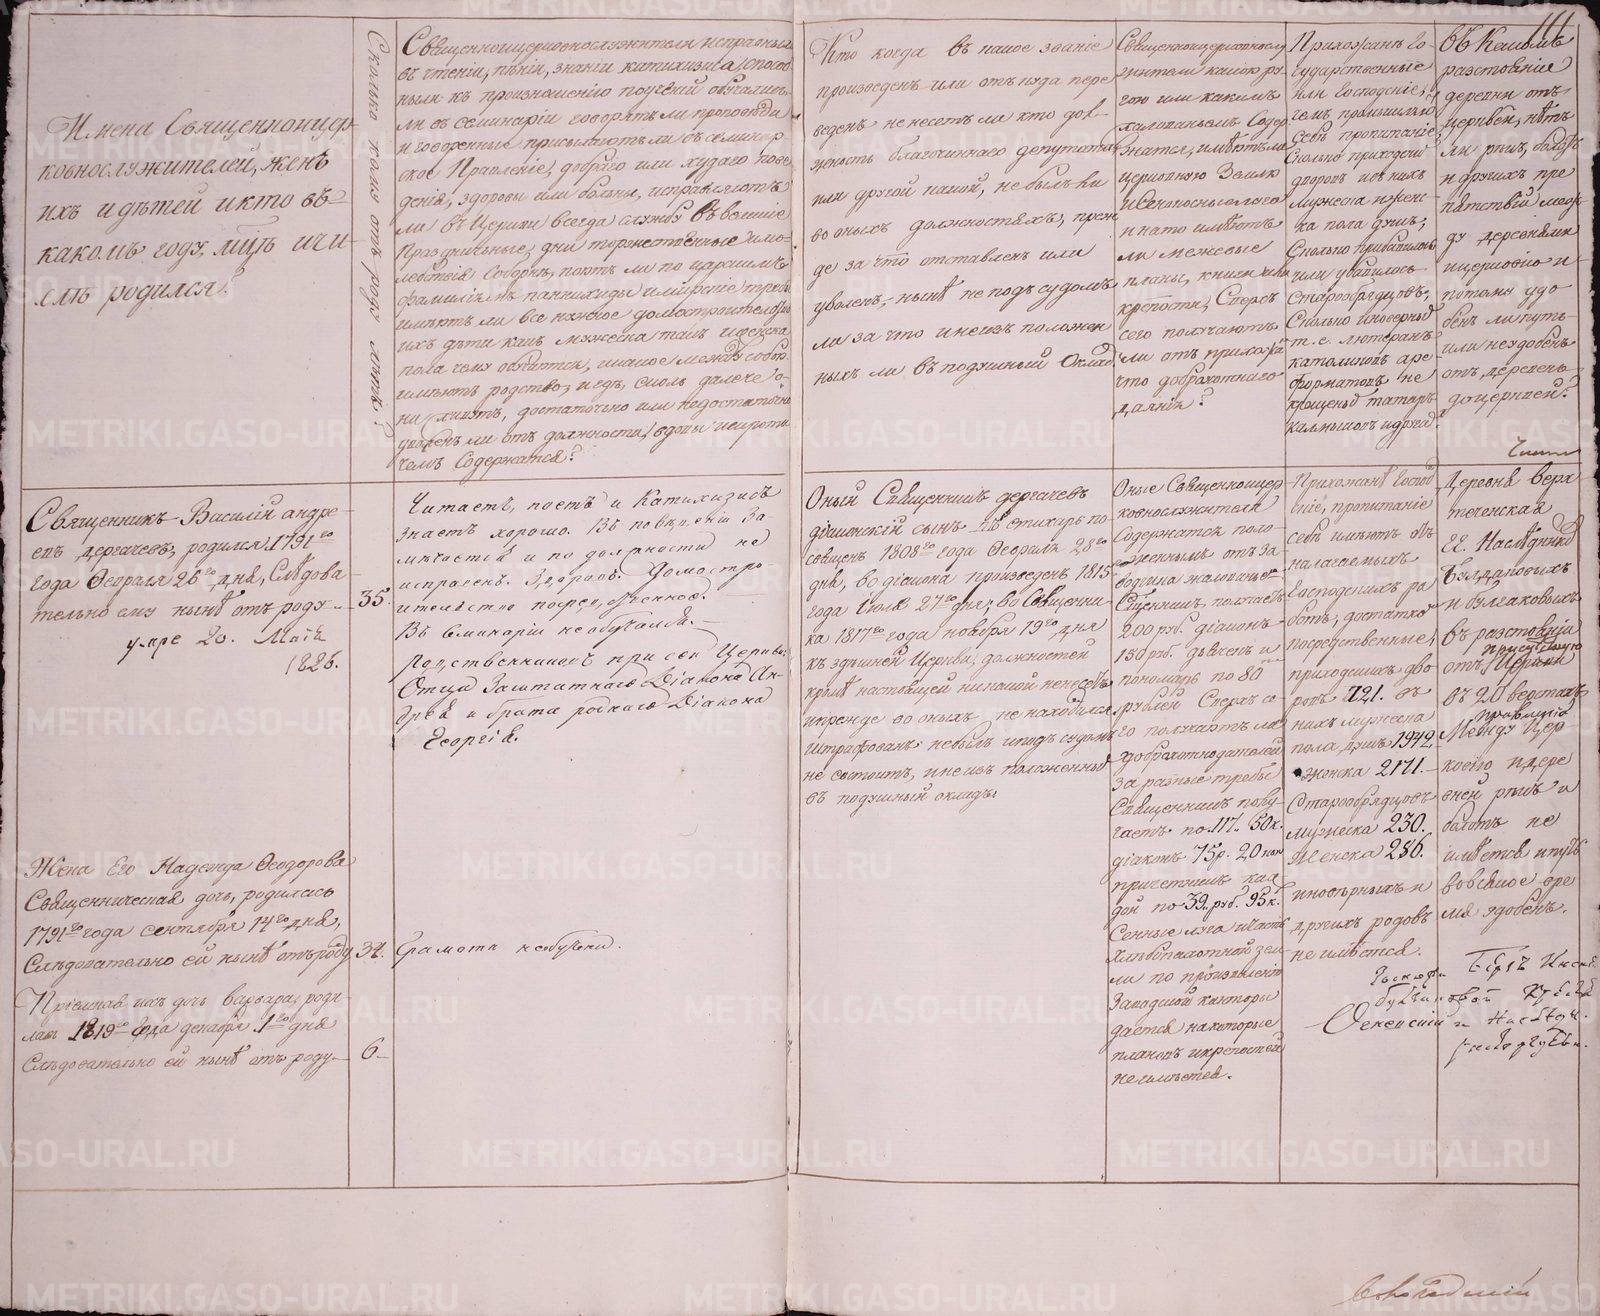 111
Имена Священноцер-
ковнослужителей, женъ
ихъ и дѣтей и кто въ
какомъ году, мцѣ и чи-
слѣ родился?
Сколько кому отъ роду лѣтъ?
Священноцерковнослужители исправны ли
въ чтеніи, пѣніи, знаніи катихизиса, способ-
ны ли къ произношенію поученій обучались
ли въ семинаріи говорятъ ли проповѣди
и говоренныя присылаютъ ли въ семинар-
ское Правленіе, добраго или худаго пове-
денія, здоровы или больны, исправляютъ
ли въ Церкви всегда службу въ воскные
Праздничные, дни торжественные и мо-
лебствія Соборнѣ, поютъ ли по царскимъ
фамиліямъ паннихиды и мирскіе требы
имѣютъ ли все нужное домостроительство
ихъ дѣти какъ мужеска такъ и женска
пола чему обучатся, и какое между собою
имѣютъ родство, и гдѣ, сколь далече о-
ни живутъ, достаточно или недостаточно
уволенъ ли отъ должности, вдовы и сироты
чемъ Содержатся?
Кто когда въ какое званіе
произведенъ или откуда пере
веденъ не несетъ ли кто дол-
жность благочиннаго депутата
или другой какой, не былъ ли
во оныхъ должностяхъ, преж
де за что отставленъ или
уволенъ, нынѣ не подъ судомъ
ли за что и не изъ положен
ныхъ ли въ подушный Окладъ
Священноцерковнослу
жители какою ру-
гою или какимъ
жалованьемъ Содер
жатся, имѣютъ ли
церковную Землю
и Сенокосы и сколко
и на то имѣютъ
ли межевые
планы, книги или
крепости, Сверхъ
сего получаютъ
ли отъ прихожанъ
что доброхотнаго
даянія?
Прихожане Го-
сударственные
или Господскіе,
чемъ промышляютъ
Себѣ пропитаніе,
Сколько приходскихъ
дворовъ и въ нихъ
мужеска и женс-
ка пола душъ,
Сколько прибавилось
или убавилось
Старообрядцовъ,
Сколько иноверныхъ
т. е. лютеранъ
католиковъ ре-
форматовъ не
крещеныхъ татаръ
калмыковъ и другихъ
въ Какомъ
разстояніи
деревни отъ
церквей, нѣтъ
ли рѣкъ, болотъ
и другихъ пре
пятствій меж-
ду деревнями
и церковію и
потому удо
бенъ ли путь
или неудобенъ
отъ деревень
до церквей?
Священникъ Василій Андре-
евъ Дергачевъ, родился 1791го
года Февраля 26го дня, Слѣдова
тельно ему нынѣ отъ роду — 35.
умре 20. Маія
1826.
Читаетъ, поетъ и Катихизисъ
знаетъ хорошо. Въ поведеніи За-
мѣчается и по должности не
исправенъ. Здоровъ. Домостро-
ительство посредственное.
Въ семинаріи не обучался.
Родственниковъ при сей Церкви:
Отца Заштатнаго Діакона Ан-
дрея и брата роднаго Діакона
Георгія.
Оный Священникъ Дергачевъ
діаконскій сынъ въ стихарь по-
священъ 1808го года Февраля 28го
дня, во діакона произведенъ 1815
года Іюля 27го дня, во Священни-
ка 1817го года ноября 19го дня
къ здѣшней Церкви, должностей
кромѣ настоящей никакой не несетъ
и прежде во оныхъ не находился
Штрафованъ небылъ и подъ судомъ
не состоитъ, и не изъ положенныхъ
въ подушный окладъ.
Оные Священноцер-
ковнослужители
Содержатся поло-
женнымъ отъ за-
водчика жалованьемъ
Священникъ получаетъ
200 руб. діаконъ
150 руб. дьячекъ и
пономарь по 80
рублей Сверхъ се-
го получаютъ ли
доброхотнодателей
за разные требы
Священникъ полу-
чаетъ по 117. 50к.
діаконъ 75р. 20 коп
причетникъ каж
дой по 39. руб. 95к.
Сенные луга и часть
хлѣбопахотной зем
ли по произволенію
Заводской канторы
дается на которые
плановъ и крепостей
не имѣется.
Прихожанѣ Господ
скіе, пропитаніе
себѣ имѣютъ объ
налагаемыхъ
Господскихъ ра
ботъ, достатка
посредственные,
приходскихъ дво
ровъ 721. въ
нихъ мужеска
пола душъ 1942.
женска 2171.
Старообрядцовъ
мужеска 230.
Женска 286.
иновѣрныхъ и
другихъ родовъ
не имѣется.
Деревня верх
теченская
Гг. Наслѣдниковъ
и Булгаковыхъ
въ разстояніи
отъ Церкви
въ 20 верстахъ
Между Цер
ковію и дере
вней рѣкъ и
болотъ не
имѣется и путь
во всякое вре
мя удобенъ.
Жена Его Надежда Ѳеодорова
Священническая дочь, родилась
1791го года сентября 14го дня,
Слѣдовательно ей нынѣ отъ роду 34.
Грамотѣ не обучена.
Прижитая ихъ дочь Варвара роди-
лась 1819го года декабря 1го дня
Слѣдовательно ей нынѣ отъ роду 6